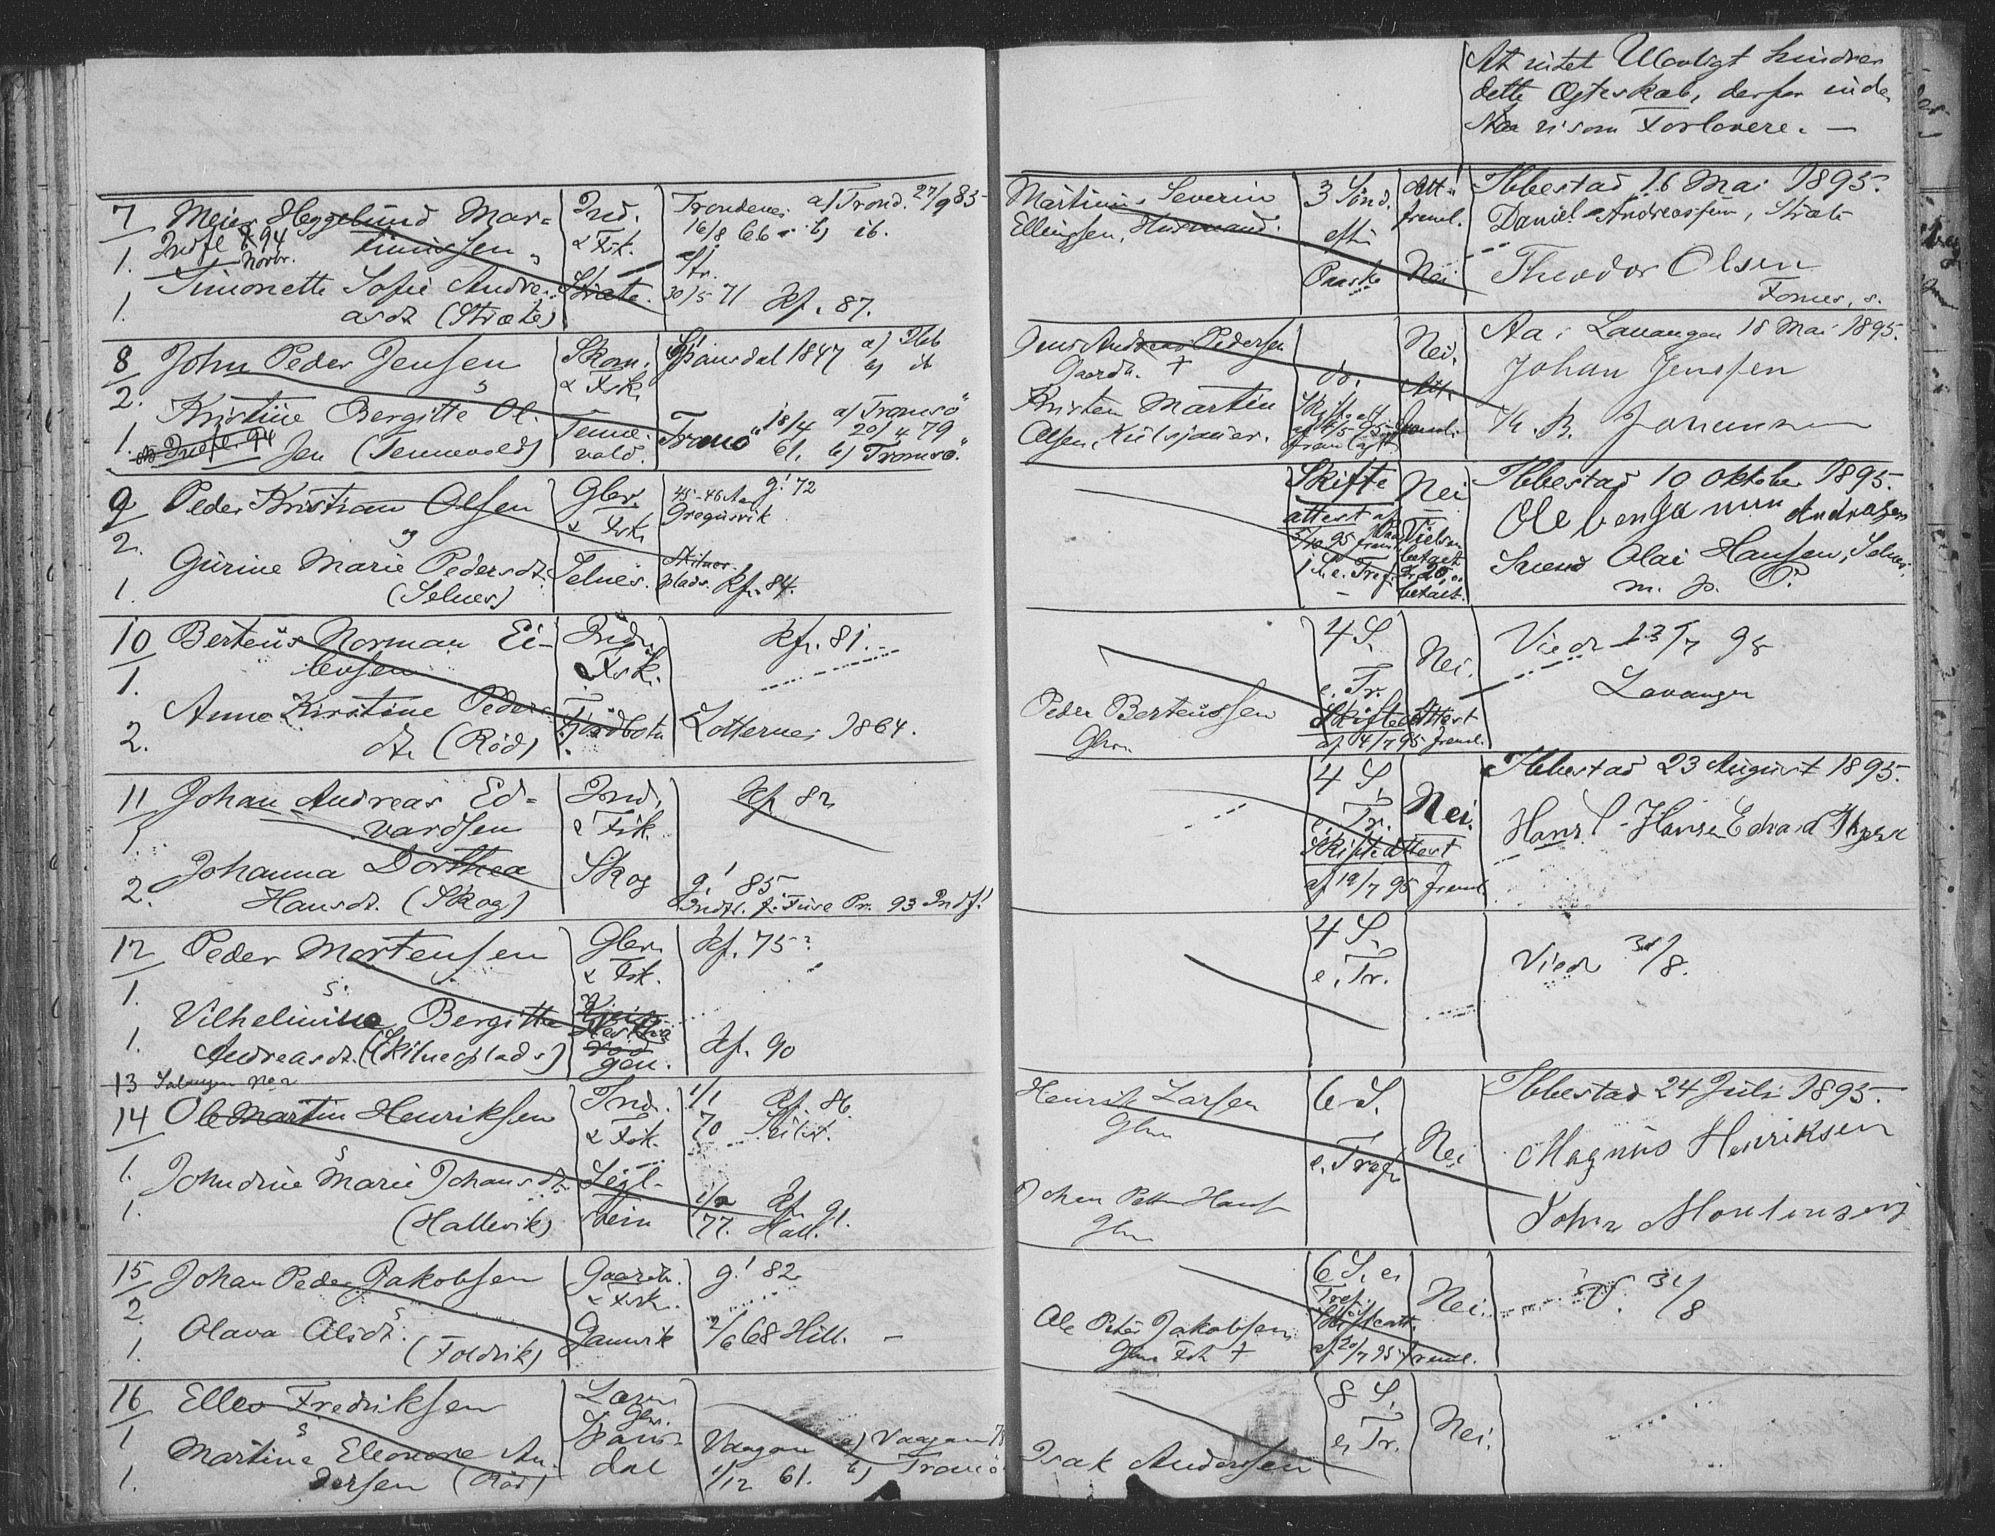 At intet Ulovligt hindrer
dette Ægteskab, derfor inde
staa vi som Forlovere. —
7 Meier Heggelund Mar-
Indfl. 94
Novbr.
tinussen
1.
Simonette Sofie Andre-
1. asdt (Stræte)
Ind.
& Fsk.
Stræte.
Trondenes a) Trond. 27/9 85
16/8 66 b) ib.
Str.
30/5 71 Kf. 87.
Martinus Severin
Ellingsen, Husmand.
3 Sönd.
efter
Paaske
Att.
freml.
Nei
Ibbestad 16 Mai 1895.
Daniel Andreassen, Stræte
Theodor Olsen
Fornes, s.
8 John Peder Jensen
2.
Kristine Bergitte Ol-
1. Indfl. 94 sen (Tennevold)
Skom.
& Fsk.
Tenne-
vold.
Spansdal 1847 a) Ibb
b) ib
Tromsö 18/4 61. a) Tromsö
20/4 79
b) Tromsö
Jens Andreas Pedersen
Gaardb. †
Kristen Martin
Olsen,
do.
Nei.
Att.
freml.
Aa i Lavangen 18 Mai 1895.
Johan Jenssen
K. B. Johansen
9 Peder Kristian Olsen
og
2.
Gurine Marie Pedersdt.
1. (Selnes)
Gbr.
& Fsk.
Selnes.
45-46 Aa g! 72
Grogusvik
Skilnes-
plads. Kf. 84.
Skifte
attest af
5/10 95 freml.
e. Tref.
Nei
betalt.
Ibbestad 10 Oktober 1895.
Ole benjamin Andrasen
Svend Olai Hansen, Selnes,
m. p. P.
10 Berteus Norman Ei-
levsen
1.
Anne Kirstine Peders-
2. dt. (Röd)
Inds.
& Fsk.
Fjordbotn
Kf. 81.
Lotternes 1864.
Peder Berteussen
Gbr.
4 S.
e. Tr.
Skifteattest
af 4/7 95 freml.
Nei.
Viede 23/7 95
Lavangen
11 Johan Andreas Ed-
vardsen
1
Johanna Dorthea
2. Hansdt. (Skog)
Ind.
& Fsk.
Skog
Kf. 82
g! 85
Indfl. f. Fuse Pr. 93 Indf!
4 S.
e. Tr.
Skifteattest
af 19/7 95 freml.
Nei.
Ibbestad 23 August 1895.
Hans Hansen Edvard
12 Peder Mortensen
1. s.
Vilhelmine Bergitte
1. Andreasdt. (Skilnesplads)
Gbr.
& Fsk.
gen.
Kf. 75
Kf. 90
4 S.
e. Tr.
Viede 31/8.
13 Salangen No 2
14 Ole Martin Henriksen
s
1. Johndine Marie Johansdt.
1. (Hallevik)
Ind.
& Fsk.
Segl-
stein
1/1 70 Kf. 86.
1/2 77. Kf. 91.
Hall.
Henrik Larsen
Gbr
Johan Petter Hans
Gbr
6 S.
e. Tref.
Nei
Ibbestad 24 Juli 1895.
Magnus Henriksen
Johan Mortensen
15 Johan Peder Jakobsen
2. s
Olava Olsdt.
1. (Foldvik)
Gaardb.
& Fsk.
Gamvik
g! 82
2/6 68 Hill. —
Ole Peter Jakobsen
Gbr Fsk †
6 S. e.
Tref.
Skifteatt.
af 20/7 95 freml.
Nei.
V. 31/8
16 Ellev Fredriksen
1 s
Martine Eleonore An-
1. dersen (Röd)
Gbr.
Spans-
dal
Vaagan a) Vaagan 78
1/12 61. b) Tromsö
Isak Anderssen
8 S.
e. Tr.
Nei.